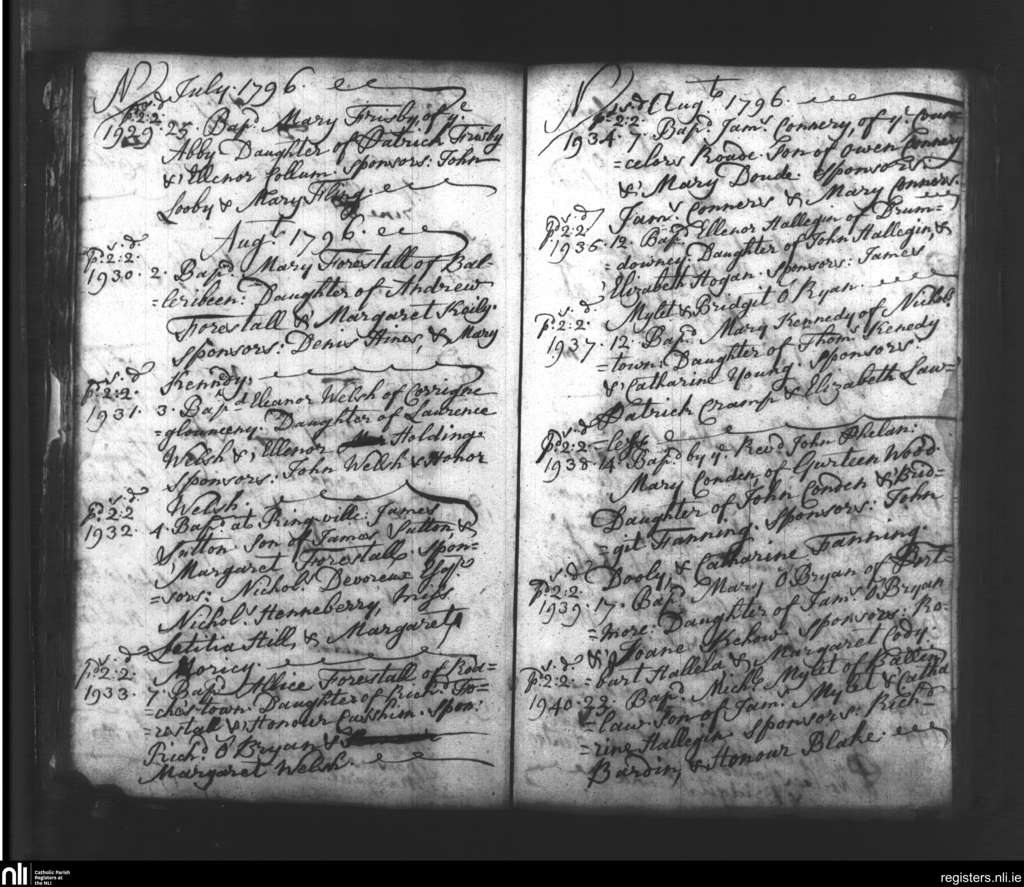 No July. 1796.
s. d
pd. 2:2
1929. 25. Bapd. Mary Frisby, of ye.
Abby Daughter of Patrick Frisby
& Ellenor Collum. Sponsors: John
Looby & Mary
Augt. 1796.
s. d
Pd. 2:2.
1930. 2. Bapd. Mary Forestall of Bal=
=leribeen: Daughter of Andrew
Forestall & Margaret Keily.
Sponsors: Denis Hines, & Mary
Kenndy.
s. d
pd. 2:2.
1931. 3. Bapd. Eleanor Welsh of Corrigne
=glounceny. Daughter of Laurence
Welsh & Ellenor Holding.
Sponsors: John Welsh & Honor
Welsh.
s. d
pd. 2:2
1932. 4. Bapd. at Ringville: James
Sutton. Son of James Sutton, &
Margaret Forestall. Spon=
=sors: Nichol. Devoreux Esqr.
Nichol. Henneberry,
Letitia Hill, & Margaret
Moricy.
s. d
pd. 2:2
1933. 7. Bapd. Allice Forestall of Roo=
=ches town. Daughter of Richd. Fo=
=restall & Honour Cushhin. Spon:
Richd. O'Bryan &
Margaret Welsh.
No Augt. 1796.
s. d
pd. 2:2.
1934. 7. Bapd. Jams. Connery, of ye. Coun
=celors Roade. Son of Owen Connery
& Mary Doude. Sponsors:
Jams. Conners & Mary Conners.
s. d
pd. 2:2
1936. 12. Bapd. Ellenor Hallegin of Drum=
=downey: Daughter of John Hallegin, &
Elizabeth Hogan. Sponsors: James
Mylet & Bridgit O'Ryan.
s. d
pd. 2:2.
1937. 12. Bapd. Mary Kennedy of Nichols
=town. Daughter of Thoms. Kenedy
& Catharine Young. Sponsors:
Patrick Cramp & Elizabeth Law=
=less
s. d
pd. 2:2
1938. 14. Bapd. by ye. Revd. John Phelan:
Mary Conden, of Gurteen Wood.
Daughter of John Conden & Brid=
=git Fanning. Sponsors: John
Dooly, & Catharine Fanning.
s. d
pd. 2:2.
1939. 17. Bapd. Mary O'Bryan of Port=
=more: Daughter of Jams. O'Bryan
& Joane Phelow. Sponsors: Ro=
=bart Hallela & Margaret Cody.
s. d
pd. 2:2.
1940. 22. Bapd. Michl. Mylet of Ballin
=law. Son of Jam. Mylet & Catha
=rine Hallegin Sponsors: Rich=
Bardin, & Honour Blake
nli Catholic Parish
Registers at
the NLI
registers.nli.ie